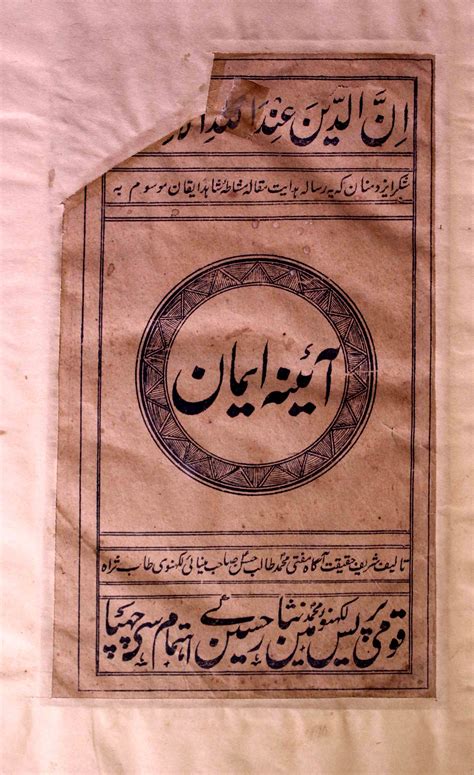 اِنَّ الدِّينَ عِنْدَ اللّٰهِ
شکر ایزد منان کہ یہ رسالہ ہدایت مقالہ مشاطہ شاہد ایقان موسوم بہ
آئینہ ایمان
تالیف شریف حقیقت آگاہ مفتی محمد طالب حسن صاحب مینائی لکھنوی طاب ثراہ
قومی پریس لکھنؤ مین محمد نثار حسین کے اہتمام سی چھپا